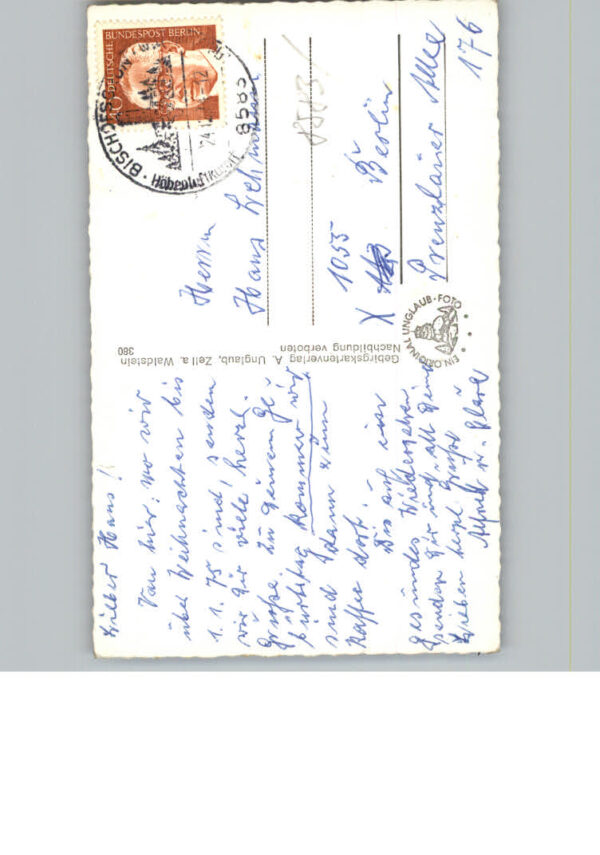 Lieber Hans!
Von hier, wo wir
über Weihnachten bis
1.1.75 sind senden
wir Dir viele herzl.
Grüße. Zu Deinem Ge
burtstag kommen wir
sind dann zum
Kaffee dort.
Bis auf ein
gesundes Wiedersehen
senden Dir und all Deinen
Lieben herzl. Grüße
Alfred u. Clara
DEUTSCHE BUNDESPOST BERLIN
BISCHOFSGRÜN
Höhenluftkurort
8583
Herrn
Hans Lehmann
1055
X Berlin
Prenzlauer Allee
176
Gebirgskartenverlag A. Unglaub, Zell a. Waldstein
Nachbildung verboten 380
EIN ORIGINAL UNGLAUB-FOTO